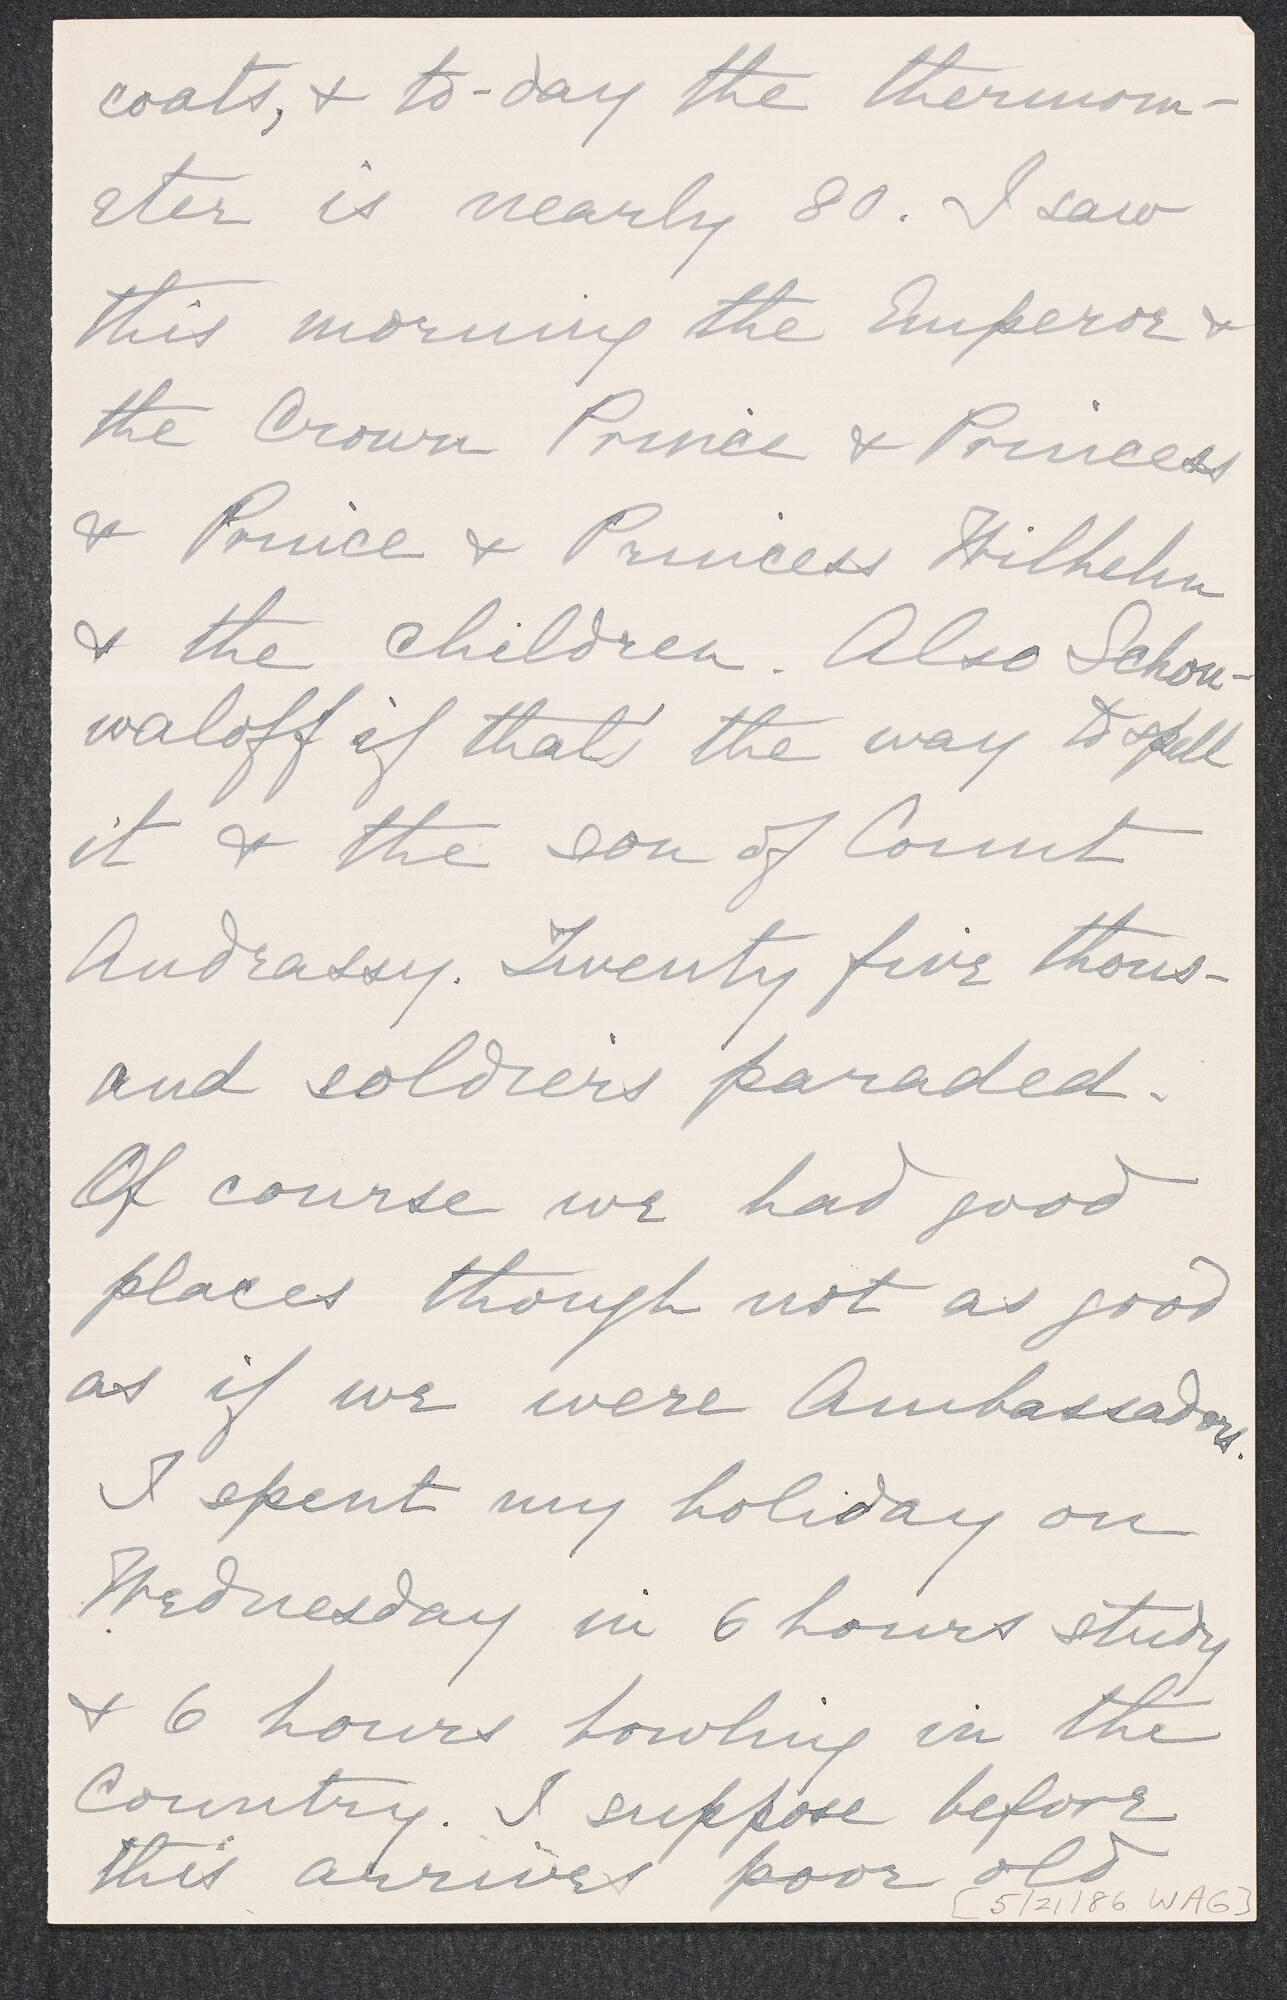 coats, & to-day the thermom-
eter is nearly 80. I saw
this morning the Emperor &
the Crown Prince & Princess
& Prince & Princess Wilhelm
& the children. Also Schou-
waloff if that's the way to spell
it & the son of Count
Andrassy. Twenty five thous-
and soldiers paraded.
Of course we had good
places though not as good
as if we were Ambassadors.
I spent my holiday on
Wednesday in 6 hours study
& 6 hours bowling in the
Country. I suppose before
this arrives poor old
[5/21/86 WAG]